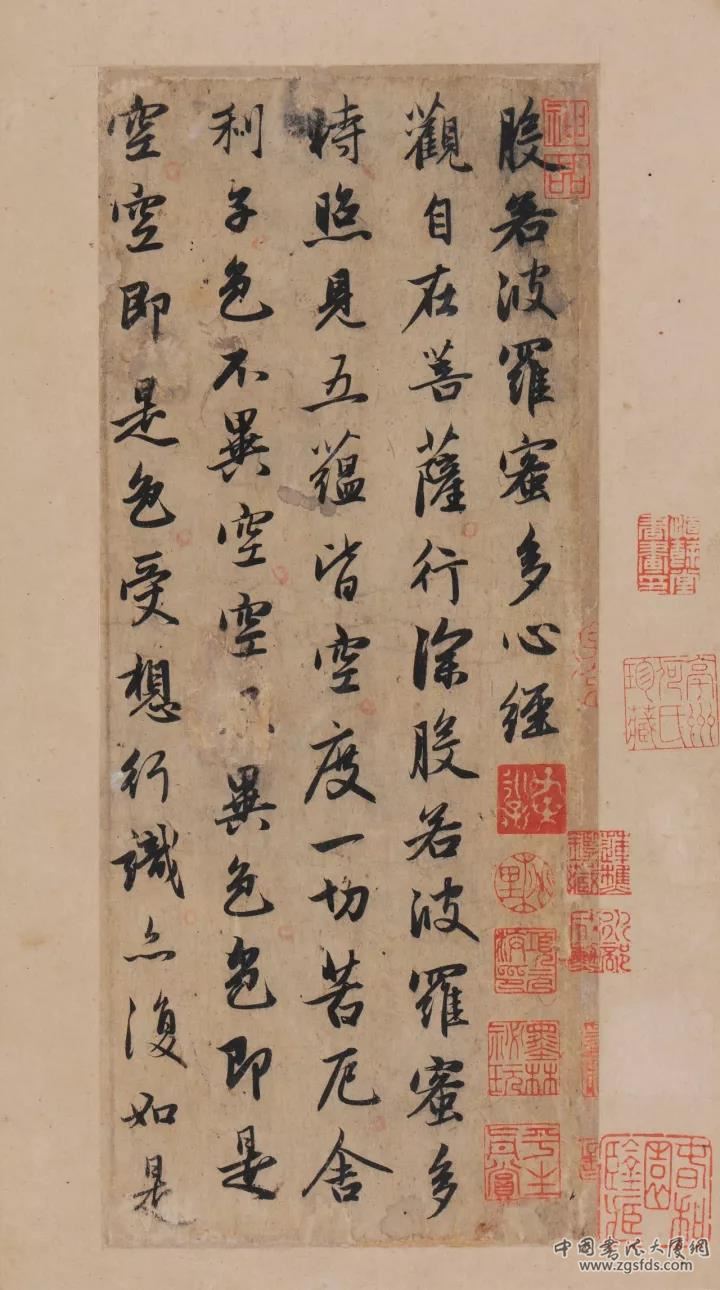 般若波羅蜜多心經
觀自在菩薩行深般若波羅蜜多
時照見五蘊皆空度一切苦厄舍
利子色不異空空不異色色即是
空空即是色受想行識亦復如是
墨林祕玩
平生真賞
中國書法大廈網
www.zgsfds.com